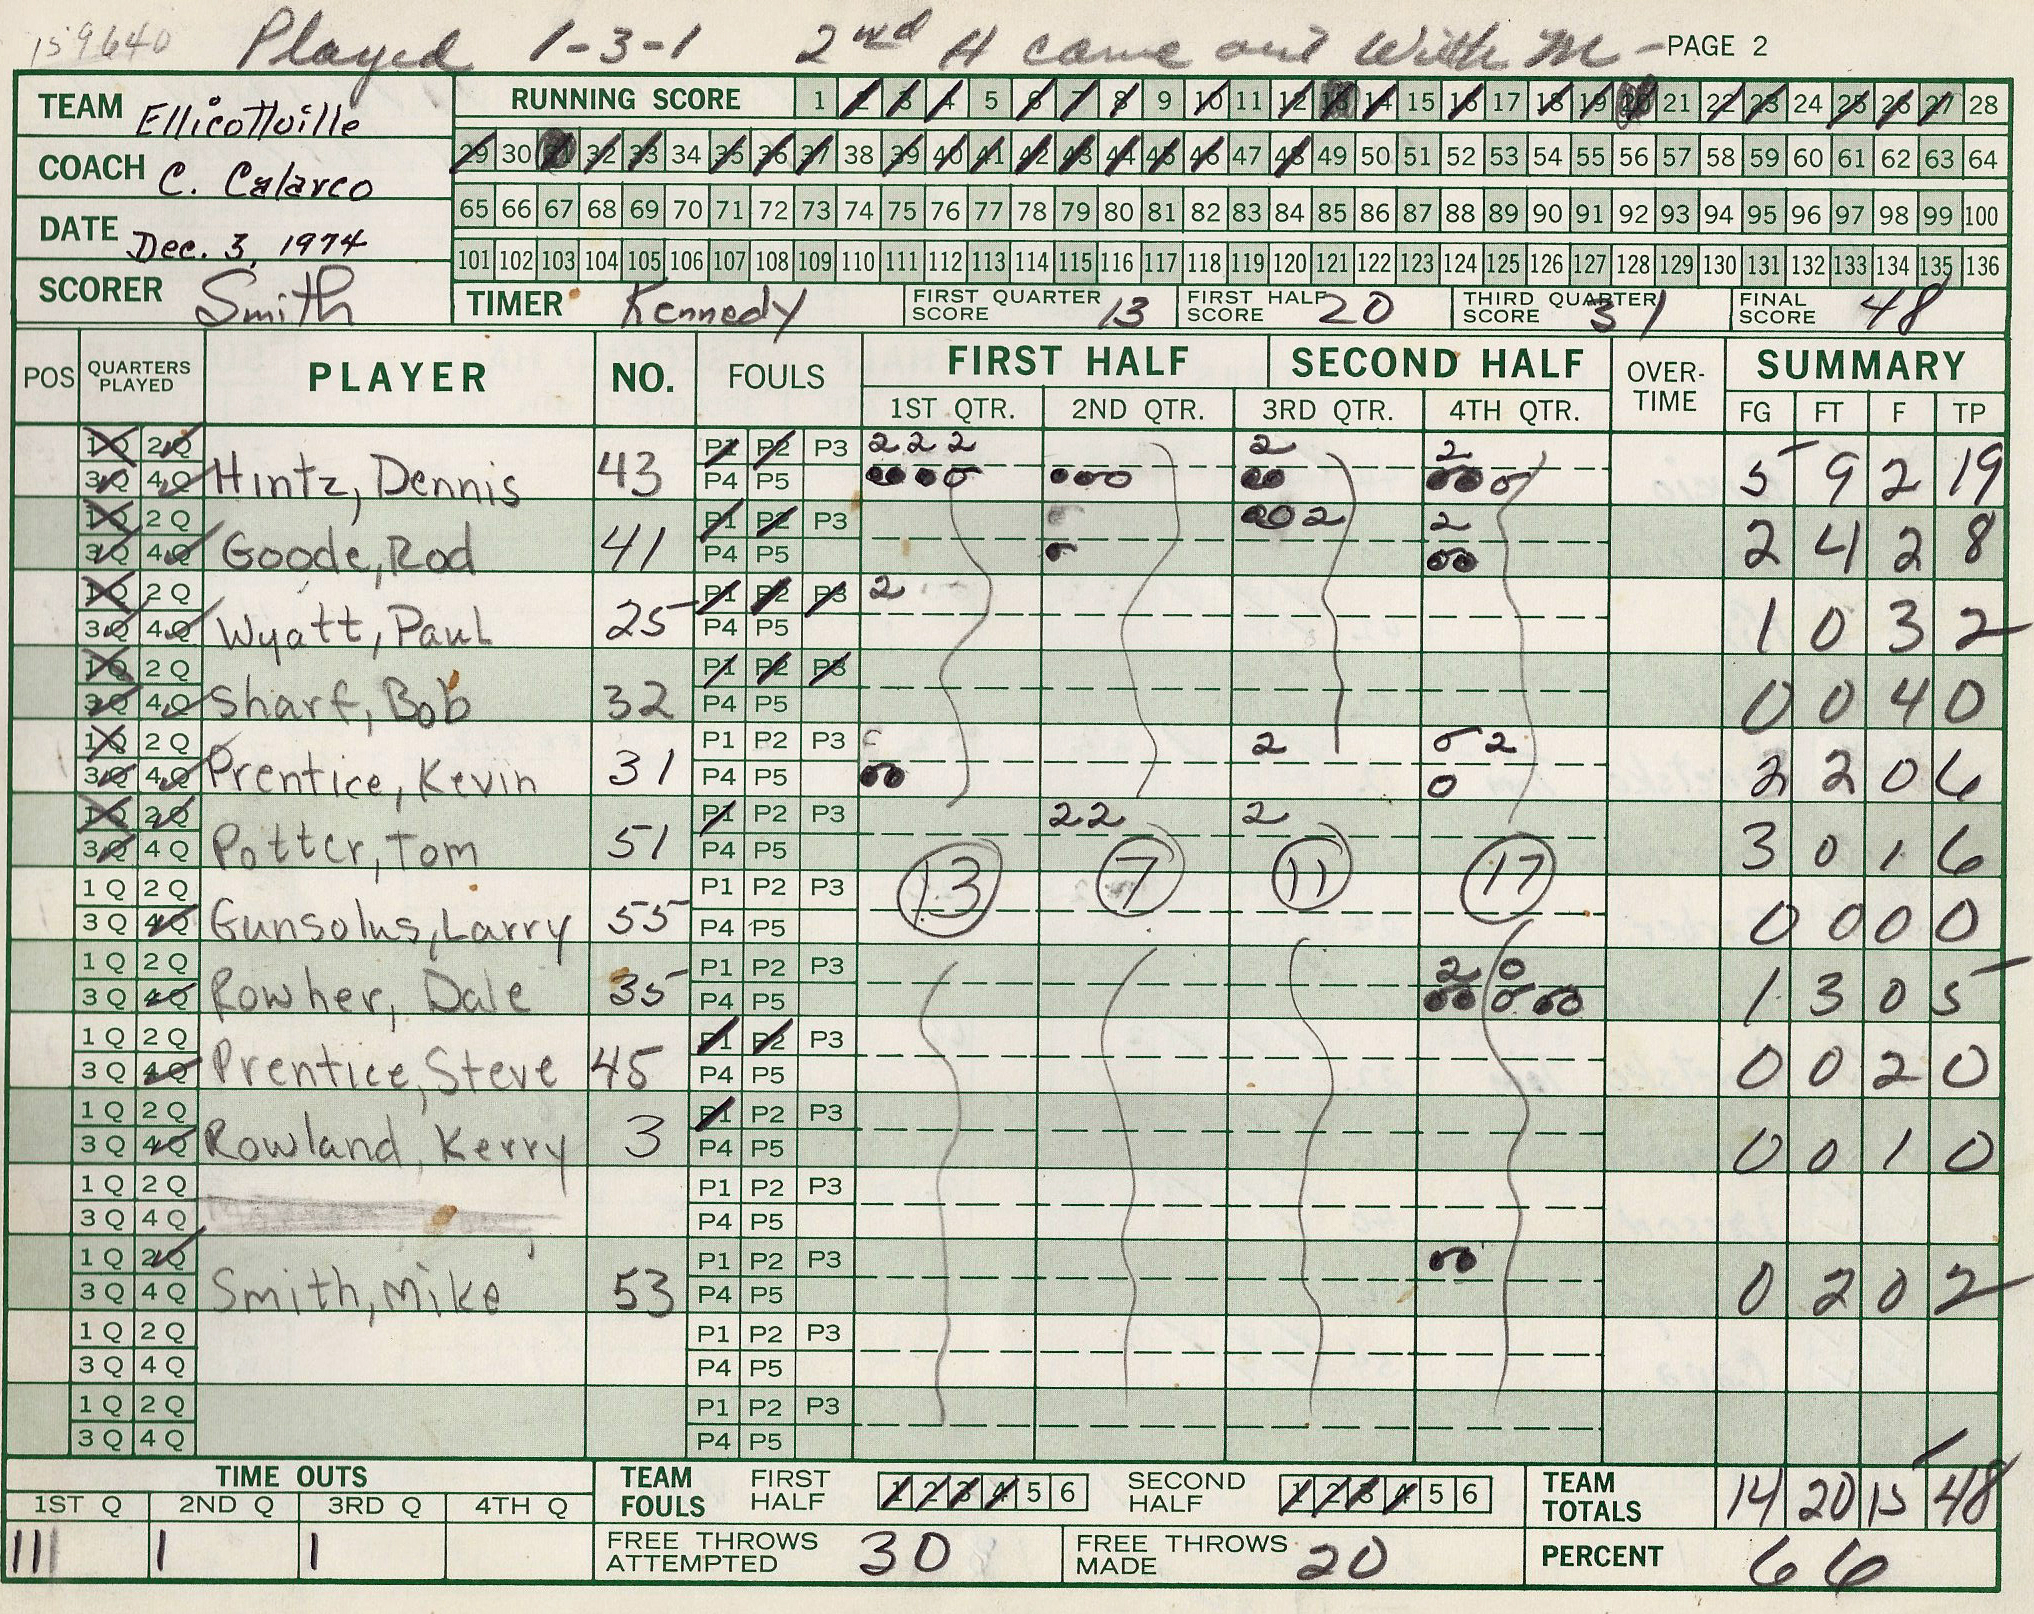 159640 Played 1-3-1 2nd H came out With M - PAGE 2
TEAM Ellicottville
COACH C. Calarco
DATE Dec. 3, 1974
SCORER Smith
RUNNING SCORE 1 2 3 4 5 6 7 8 9 10 11 12 13 14 15 16 17 18 19 20 21 22 23 24 25 26 27 28
29 30 31 32 33 34 35 36 37 38 39 40 41 42 43 44 45 46 47 48 49 50 51 52 53 54 55 56 57 58 59 60 61 62 63 64
65 66 67 68 69 70 71 72 73 74 75 76 77 78 79 80 81 82 83 84 85 86 87 88 89 90 91 92 93 94 95 96 97 98 99 100
101 102 103 104 105 106 107 108 109 110 111 112 113 114 115 116 117 118 119 120 121 122 123 124 125 126 127 128 129 130 131 132 133 134 135 136
TIMER Kennedy FIRST QUARTER SCORE 13 FIRST HALF SCORE 20 THIRD QUARTER SCORE 31 FINAL SCORE 48
POS QUARTERS PLAYED PLAYER NO. FOULS FIRST HALF SECOND HALF OVER-TIME SUMMARY
1ST QTR. 2ND QTR. 3RD QTR. 4TH QTR. FG FT F TP
1Q 2Q P1 P2 P3 2 2 2 2 2
3Q 4Q Hintz, Dennis 43 P4 P5 5 9 2 19
1Q 2Q P1 P2 P3 2 2
3Q 4Q Goode, Rod 41 P4 P5 2 4 2 8
1Q 2Q P1 P2 P3 2
3Q 4Q Wyatt, Paul 25 P4 P5 1 0 3 2
1Q 2Q P1 P2 P3
3Q 4Q Sharf, Bob 32 P4 P5 0 0 4 0
1Q 2Q P1 P2 P3 2 2
3Q 4Q Prentice, Kevin 31 P4 P5 2 2 0 6
1Q 2Q P1 P2 P3 2 2 2
3Q 4Q Potter, Tom 51 P4 P5 3 0 1 6
13 7 11 17
1Q 2Q P1 P2 P3
3Q 4Q Gunsolus, Larry 55 P4 P5 0 0 0 0
1Q 2Q P1 P2 P3 2
3Q 4Q Rowher, Dale 35 P4 P5 1 3 0 5
1Q 2Q P1 P2 P3
3Q 4Q Prentice, Steve 45 P4 P5 0 0 2 0
1Q 2Q P1 P2 P3
3Q 4Q Rowland, Kerry 3 P4 P5 0 0 1 0
1Q 2Q P1 P2 P3
3Q 4Q P4 P5
1Q 2Q P1 P2 P3
3Q 4Q Smith, Mike 53 P4 P5 0 2 0 2
1Q 2Q P1 P2 P3
3Q 4Q P4 P5
1Q 2Q P1 P2 P3
3Q 4Q P4 P5
TIME OUTS TEAM FOULS FIRST HALF 1 2 3 4 5 6 SECOND HALF 1 2 3 4 5 6 TEAM TOTALS 14 20 15 48
1ST Q 2ND Q 3RD Q 4TH Q
111 1 1 FREE THROWS ATTEMPTED 30 FREE THROWS MADE 20 PERCENT 66